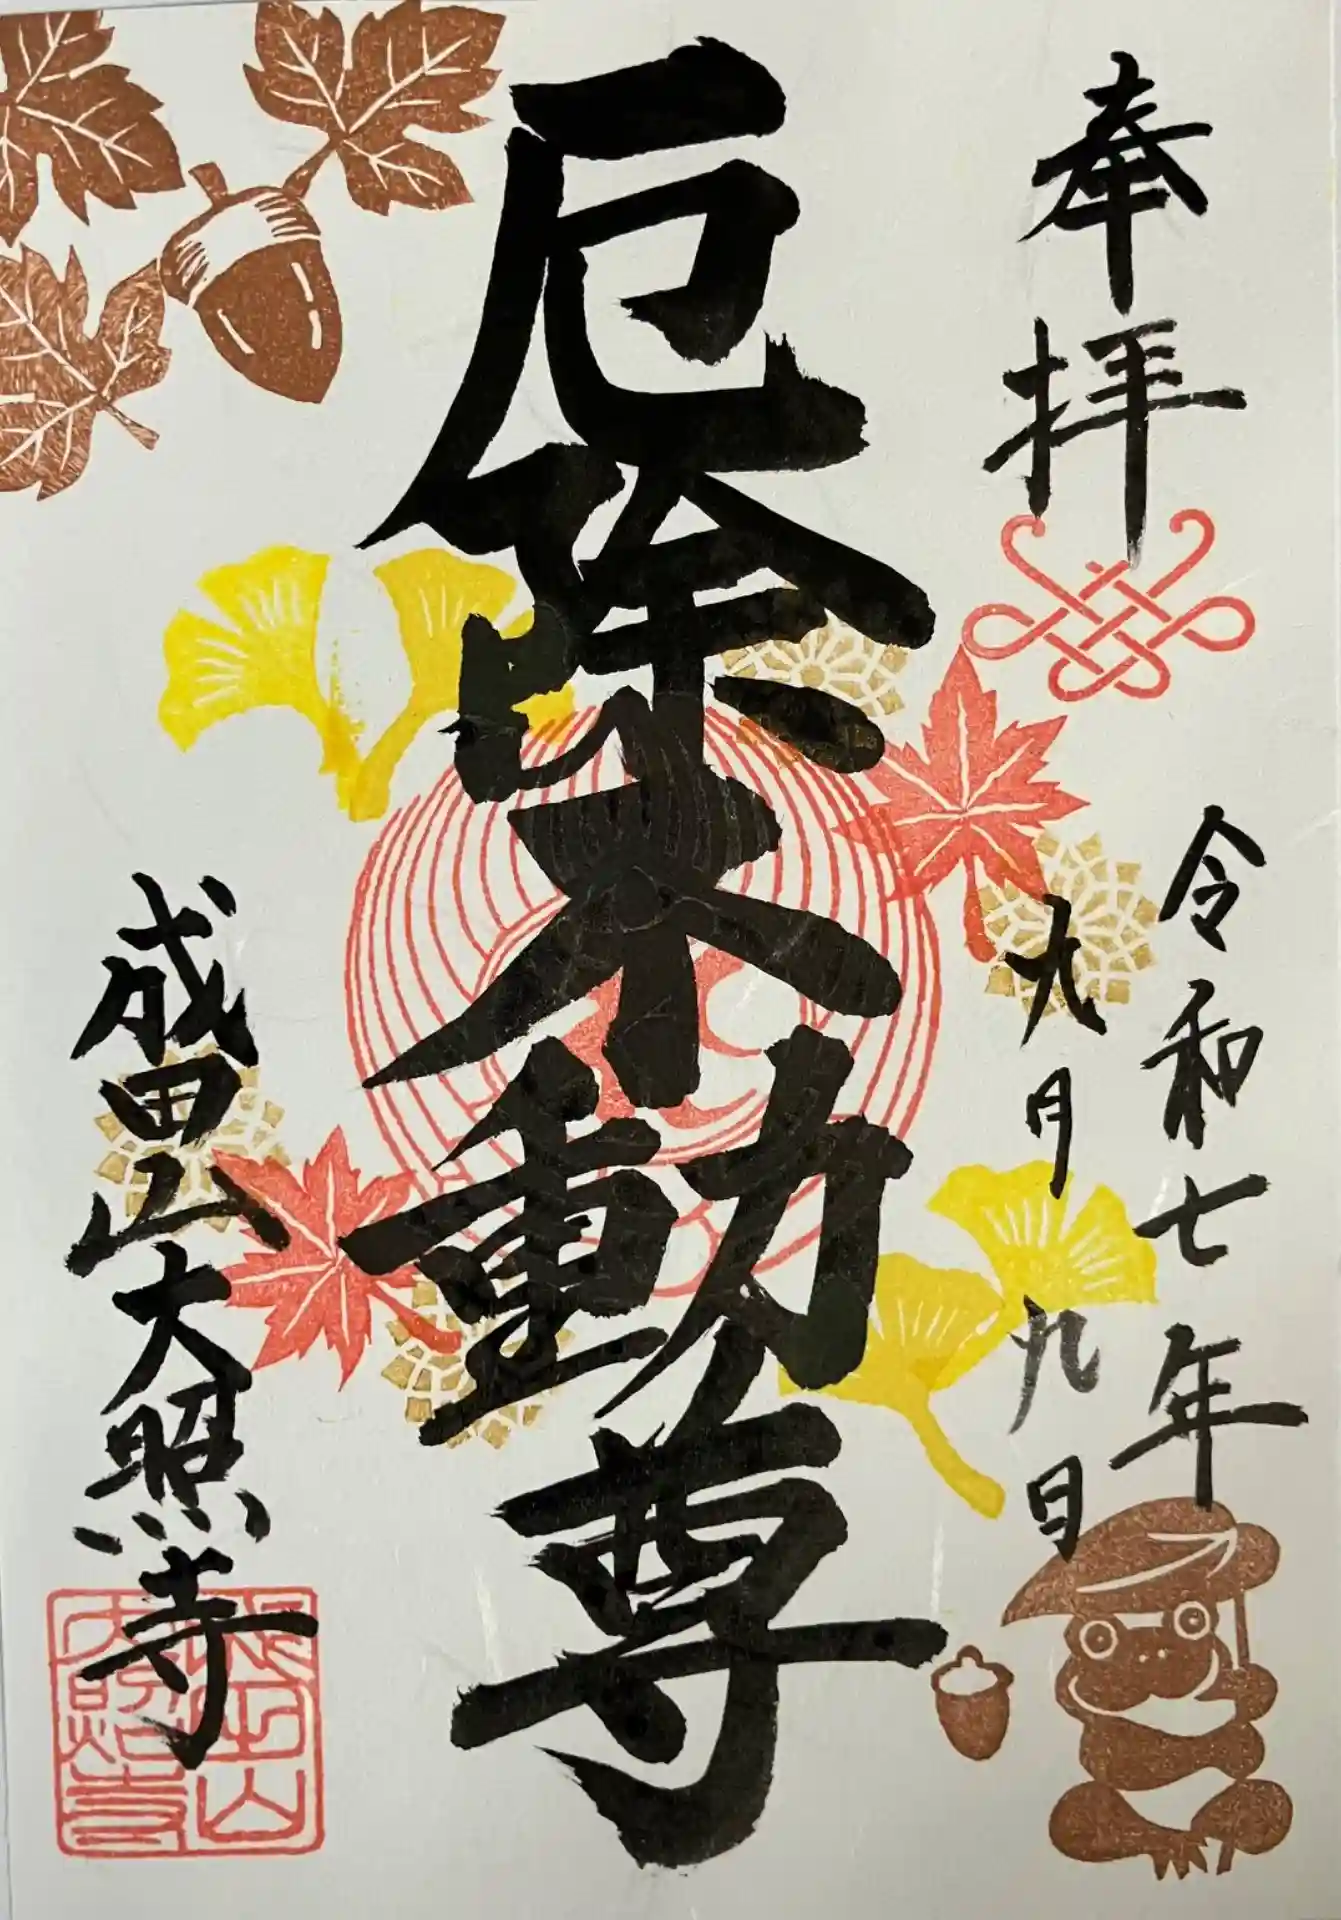 奉拝
令和七年
九月九日
厄除不動尊
成田山大照寺
成田山
大照寺